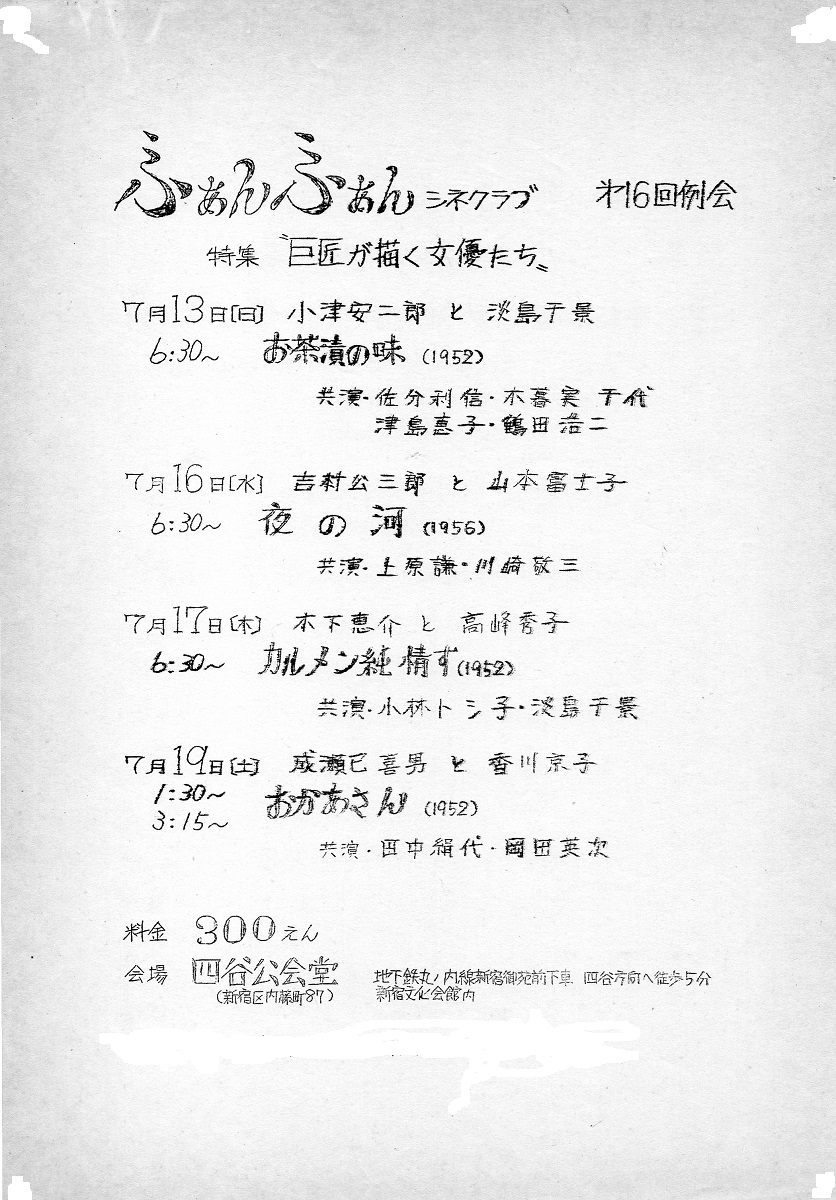 ふぁんふぁん シネクラブ 才16回例会
特集 〝巨匠が描く女優たち〟
7月13日[日] 小津安二郎 と 淡島千景
6:30～ お茶漬の味 (1952)
共演・佐分利信・木暮実千代
津島恵子・鶴田浩二
7月16日[水] 吉村公三郎 と 山本富士子
6:30～ 夜の河 (1956)
共演・上原謙・川崎敬三
7月17日[木] 木下恵介 と 高峰秀子
6:30～ カルメン純情す (1952)
共演・小林トシ子・淡島千景
7月19日[土] 成瀬巳喜男 と 香川京子
1:30～ おかあさん (1952)
3:15～
共演・田中絹代・岡田英次
料金 300えん
会場 四谷公会堂 地下鉄丸ノ内線新宿御苑前下車 四谷方向へ徒歩5分
(新宿区内藤町87) 新宿文化会館内